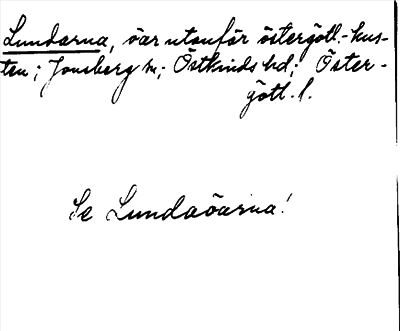 Lundarna, öar utanför östergötl.-kus-
ten; Jonsberg sn; Östkinds hd; Öster-
götl. l.
Se Lundaöarna!